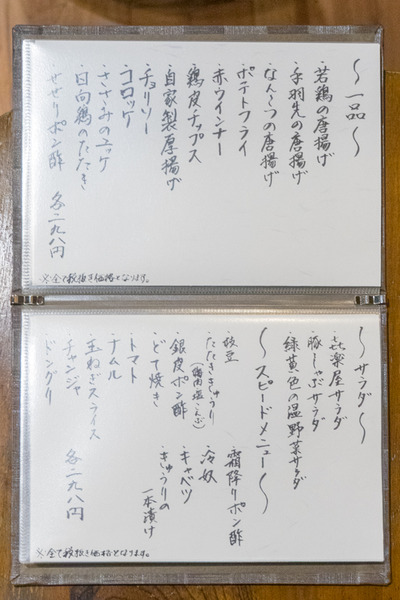 〜一品〜
・若鶏の唐揚げ
・手羽先の唐揚げ
・なんこつの唐揚げ
・ポテトフライ
・赤ウインナー
・鶏皮チップス
・自家製厚揚げ
・チョリソー
・コロッケ
・ささみのユッケ
・日向鶏のたたき
・せせりポン酢
各二九八円
※全て税抜き価格となります。
〜サラダ〜
・喜楽屋サラダ
・豚しゃぶサラダ
・緑黄色の温野菜サラダ
〜スピードメニュー〜
・枝豆
・たたききゅうり
・銀皮ポン酢
・どて焼き
・トマト
・ナムル
・玉ねぎスライス
・チャンジャ
・ドングリ
・霜降りポン酢
・冷奴
・キャベツ
・きゅうりの
一本漬け
各二九八円
※全て税抜き価格となります。